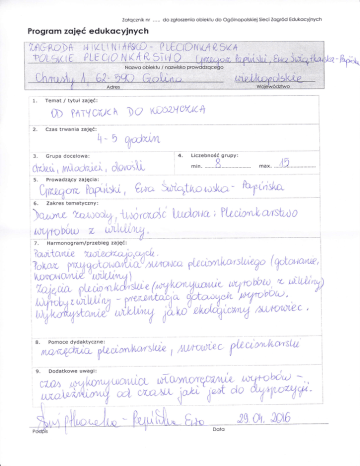 Załącznik nr .... do zgłoszenia obiektu do Ogólnopolskiej Sieci Zagród Edukacyjnych
Program zajęć edukacyjnych
ZAGRODA WIKLINIARSKO - PLECIONKARSKA
POLSKIE PLECIONKARSTWO Grzegorz Papiński, Ewa Świątkowska-Papińska
Nazwa obiektu / nazwisko prowadzącego
Chrusty 1, 62-590 Golina wielkopolskie
Adres Województwo
1. Temat / tytuł zajęć:
OD PATYCZKA DO KOSZYCZKA
2. Czas trwania zajęć:
4-5 godzin
3. Grupa docelowa: 4. Liczebność grupy:
dzieci, młodzież, dorośli min. 8 max. 15
5. Prowadzący zajęcia:
Grzegorz Papiński, Ewa Świątkowska - Papińska
6. Zakres tematyczny:
Dawne zawody, twórczość ludowa: Plecionkarstwo
wyrobów z wikliny.
7. Harmonogram/przebieg zajęć:
Powitanie zwiedzających.
Pokaz przygotowania surowca plecionkarskiego (gotowanie,
korowanie wikliny)
Zajęcia plecionkarskie (wykonywanie wyrobów z wikliny)
Wyroby z wikliny - prezentacja gotowych wyrobów.
Wykorzystanie wikliny jako ekologiczny surowiec.
8. Pomoce dydaktyczne:
narzędzia plecionkarskie, surowiec plecionkarski
9. Dodatkowe uwagi:
czas wykonywania własnoręcznie wyrobów -
uzależniony od czasu jaki jest do dyspozycji.
Świątkowska - Papińska Ewa 29.04.2016
Podpis Data